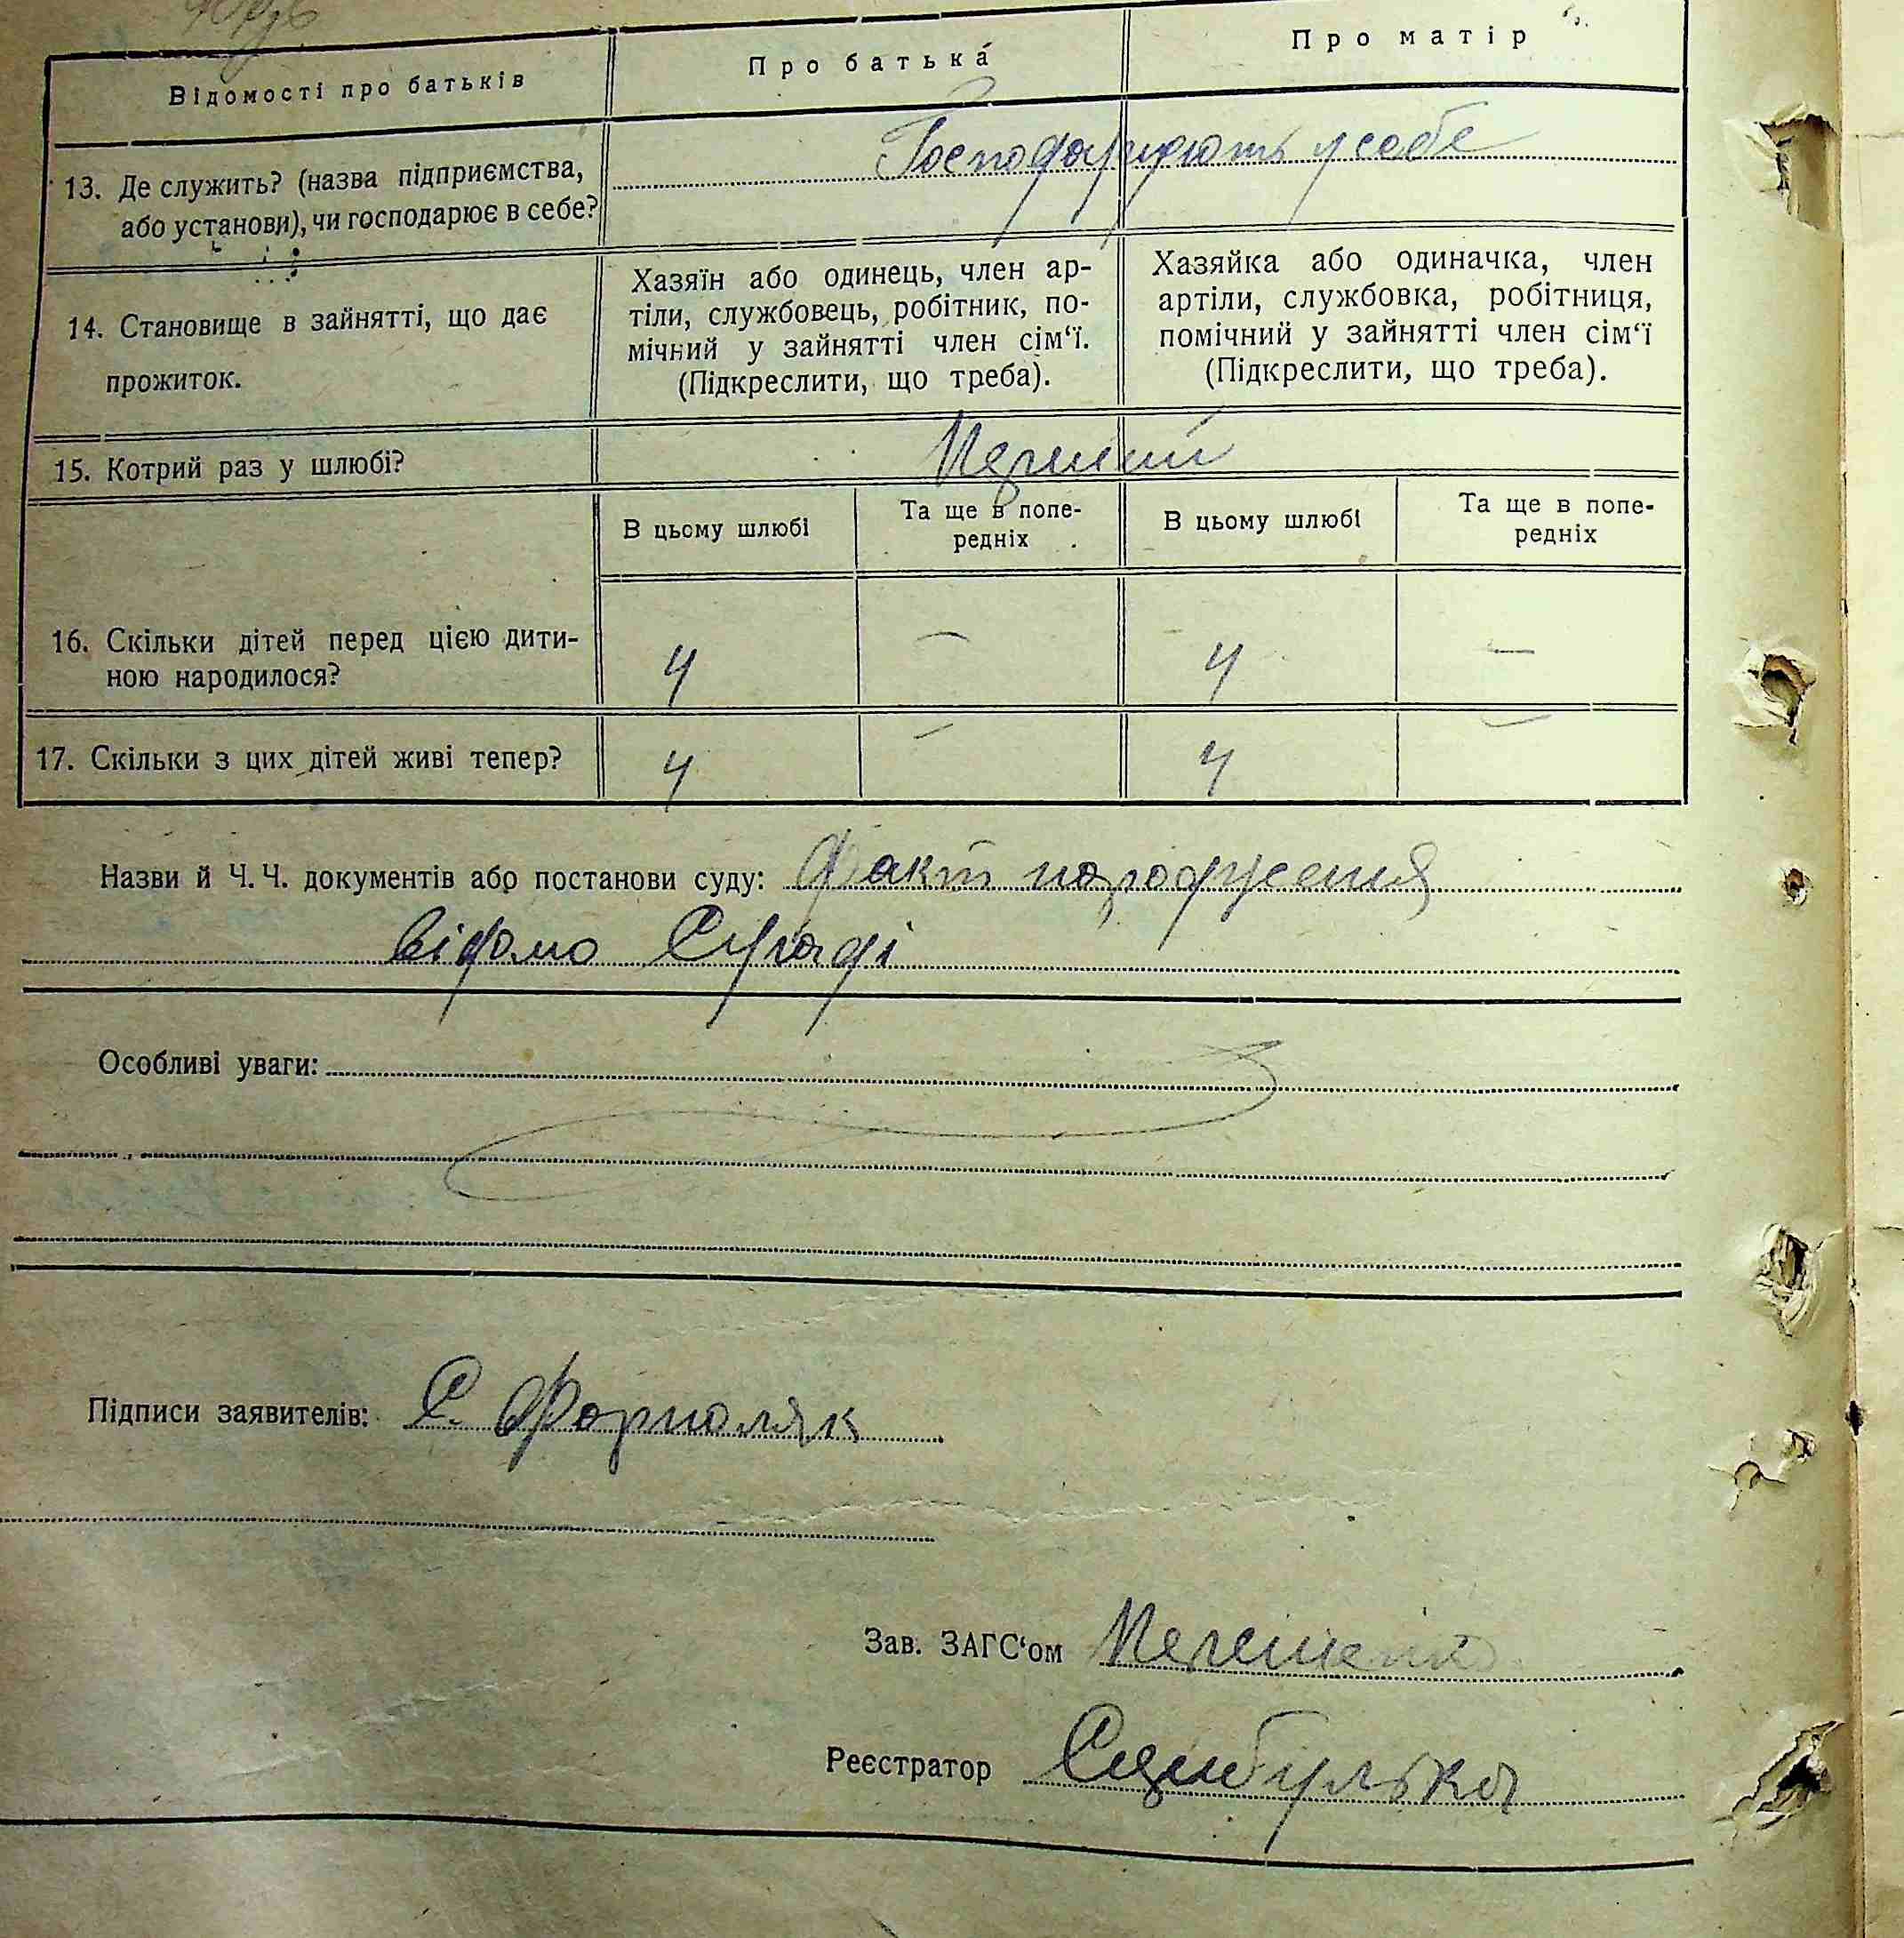 Відомості про батьків
Про батька
Про матір
13. Де служить? (назва підприємства,
або установи), чи господарює в себе?
Господарюють у себе
14. Становище в зайнятті, що дає
прожиток.
Хазяїн або одинець, член ар-
тіли, службовець, робітник, по-
мічний у зайнятті член сім‘ї.
(Підкреслити, що треба).
Хазяйка або одиначка, член
артіли, службовка, робітниця,
помічний у зайнятті член сім‘ї
(Підкреслити, що треба).
15. Котрий раз у шлюбі?
Перший
В цьому шлюбі
Та ще в попе-
редніх
В цьому шлюбі
Та ще в попе-
редніх
16. Скільки дітей перед цією дити-
ною народилося?
4 — 4 —
17. Скільки з цих дітей живі тепер?
4 — 4 —
Назви й Ч. Ч. документів або постанови суду: Факт народження
відомо Сураді
Особливі уваги:
Підписи заявителів: С. Форполяк
Зав. ЗАГС‘ом
Реєстратор